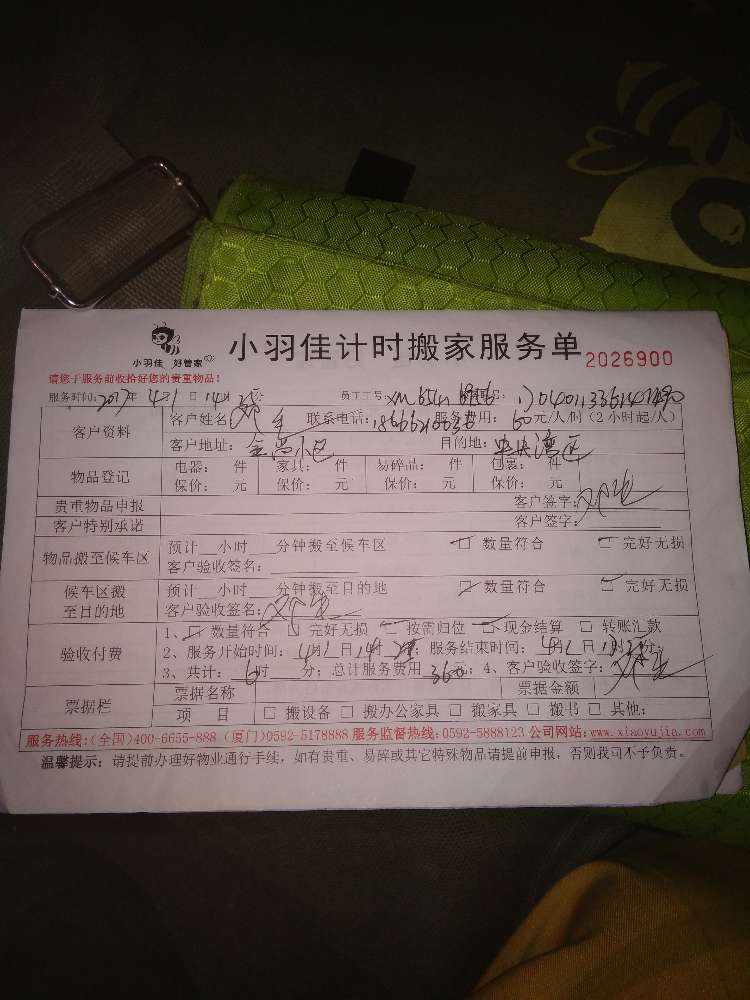 小羽佳 好管家
小羽佳计时搬家服务单 2026900
请您于服务前收拾好您的贵重物品！
服务时间：2017年4月1日14时 员工工号：
客户资料 客户姓名 联系电话： 服务费用：60元/人/时（2小时起/人）
客户地址：金尚小区 目的地：央央湾区
物品登记 电器： 件 家具： 件 易碎品： 件 包裹： 件
保价： 元 保价： 元 保价： 元 保价： 元
贵重物品申报 客户签字：
客户特别承诺 客户签字：
物品搬至候车区 预计__小时___分钟搬至候车区 数量符合 完好无损
客户验收签名：
候车区搬至目的地 预计__小时___分钟搬至目的地 数量符合 完好无损
客户验收签名：
验收付费 1、数量符合 完好无损 按需归位 现金结算 转账汇款
2、服务开始时间：4月1日14时 服务结束时间：4月1日
3、共计：6时___分；总计服务费用360元；4、客户验收签字：
票据栏 票据名称 票据金额
项 目 □ 搬设备 □ 搬办公家具 □ 搬家具 □ 搬书 □ 其他：
服务热线：（全国）400-6655-888（厦门）0592-5178888 服务监督热线：0592-5888123 公司网站：www.xiaoyujia.com
温馨提示：请提前办理好物业通行手续，如有贵重、易碎或其它特殊物品请提前申报，否则我司不予负责。